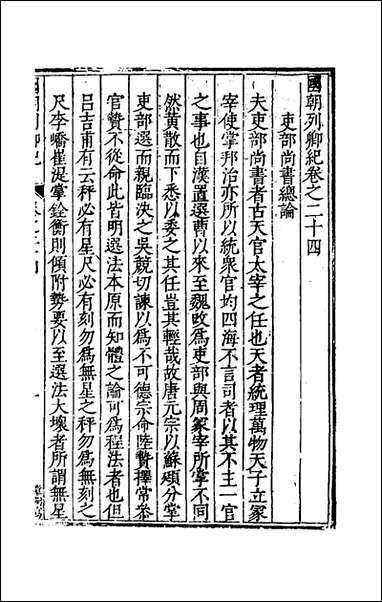 國朝列卿紀卷之二十四
吏部尚書總論
夫吏部尚書者古天官太宰之任也天者統理萬物天子立冢
宰使掌邦治亦所以統衆官均四海不言司者以其不主一官
之事也自漢置選曹以來至魏改爲吏部與周冢宰所掌不同
然黄散而下悉以委之其任豈其輕哉故唐元宗以蘇頲分掌
吏部選而親臨決之吳兢切諫以爲不可德宗命陸贄擇常叅
官贄不從命此皆明選法本原而知體之論可爲程法者也但
吕吉甫有云秤必有星尺必有刻勿爲無星之秤勿爲無刻之
尺李嶠崔湜掌銓衡則傾附勢要以至選法大壞者所謂無星